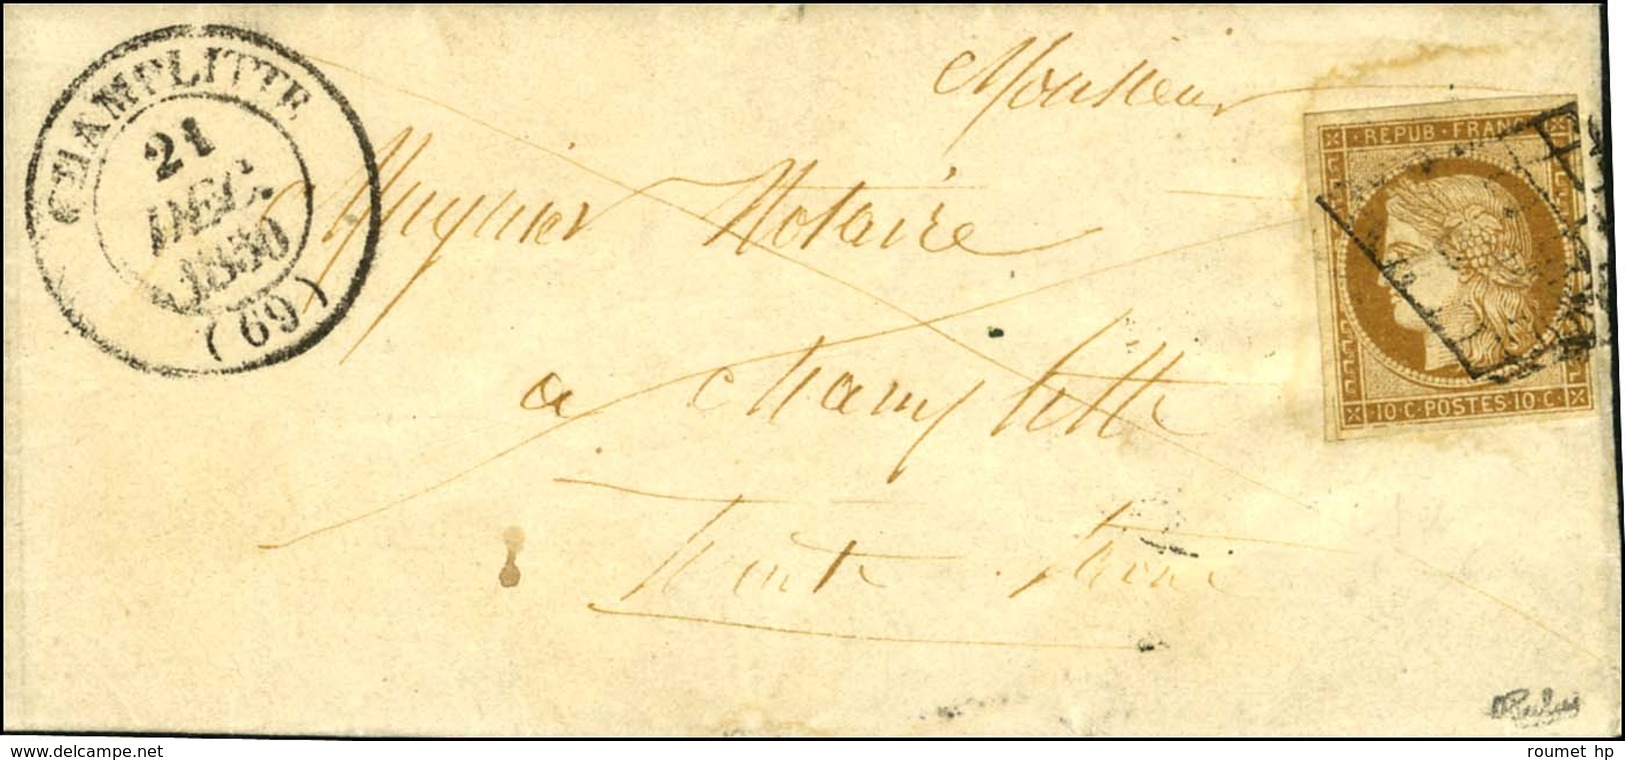 CHAMPLITTE
21
DEC.
1850
(69)
Monsieur
Muguier Notaire
a Champlitte
haute Saone
REPUB · FRANC
10 · C · POSTES · 10 · C ·
www.delcampe.net
roumet hp